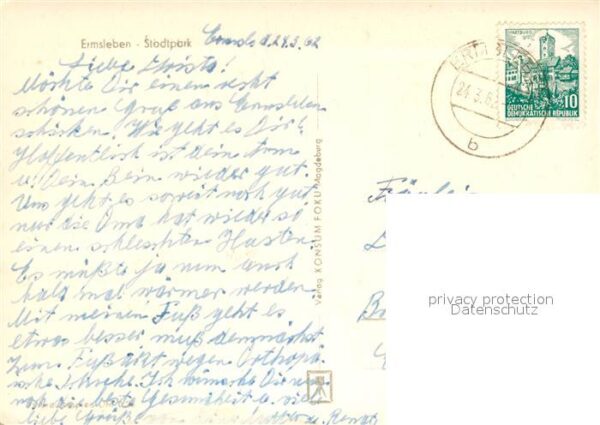 Ermsleben - Stadtpark
d. 24.3.62
Liebe Christa!
Möchte Dir einen recht
schönen Gruß aus Ermsleben
schicken. Wie geht es Dir?
Hoffentlich ist dein Arm
u. Dein Bein wieder gut.
Uns geht es soweit noch gut
nur die Oma hat wieder so
einen schlechten Husten.
Es müßte ja nun auch
bald mal wärmer werden.
Mit meinem Fuß geht es
etwas besser muß demnächst
zum Fußarzt wegen Orthopä-
sche Schuhe. Ich wünsche Dir nun
noch die beste Gesundheit u. viele
liebe Grüße von
Verlag KONSUM FOKU Magdeburg
WARTBURG
10
DEUTSCHE
DEMOKRATISCHE REPUBLIK
24.3.62
b
Fräulein
privacy protection
Datenschutz